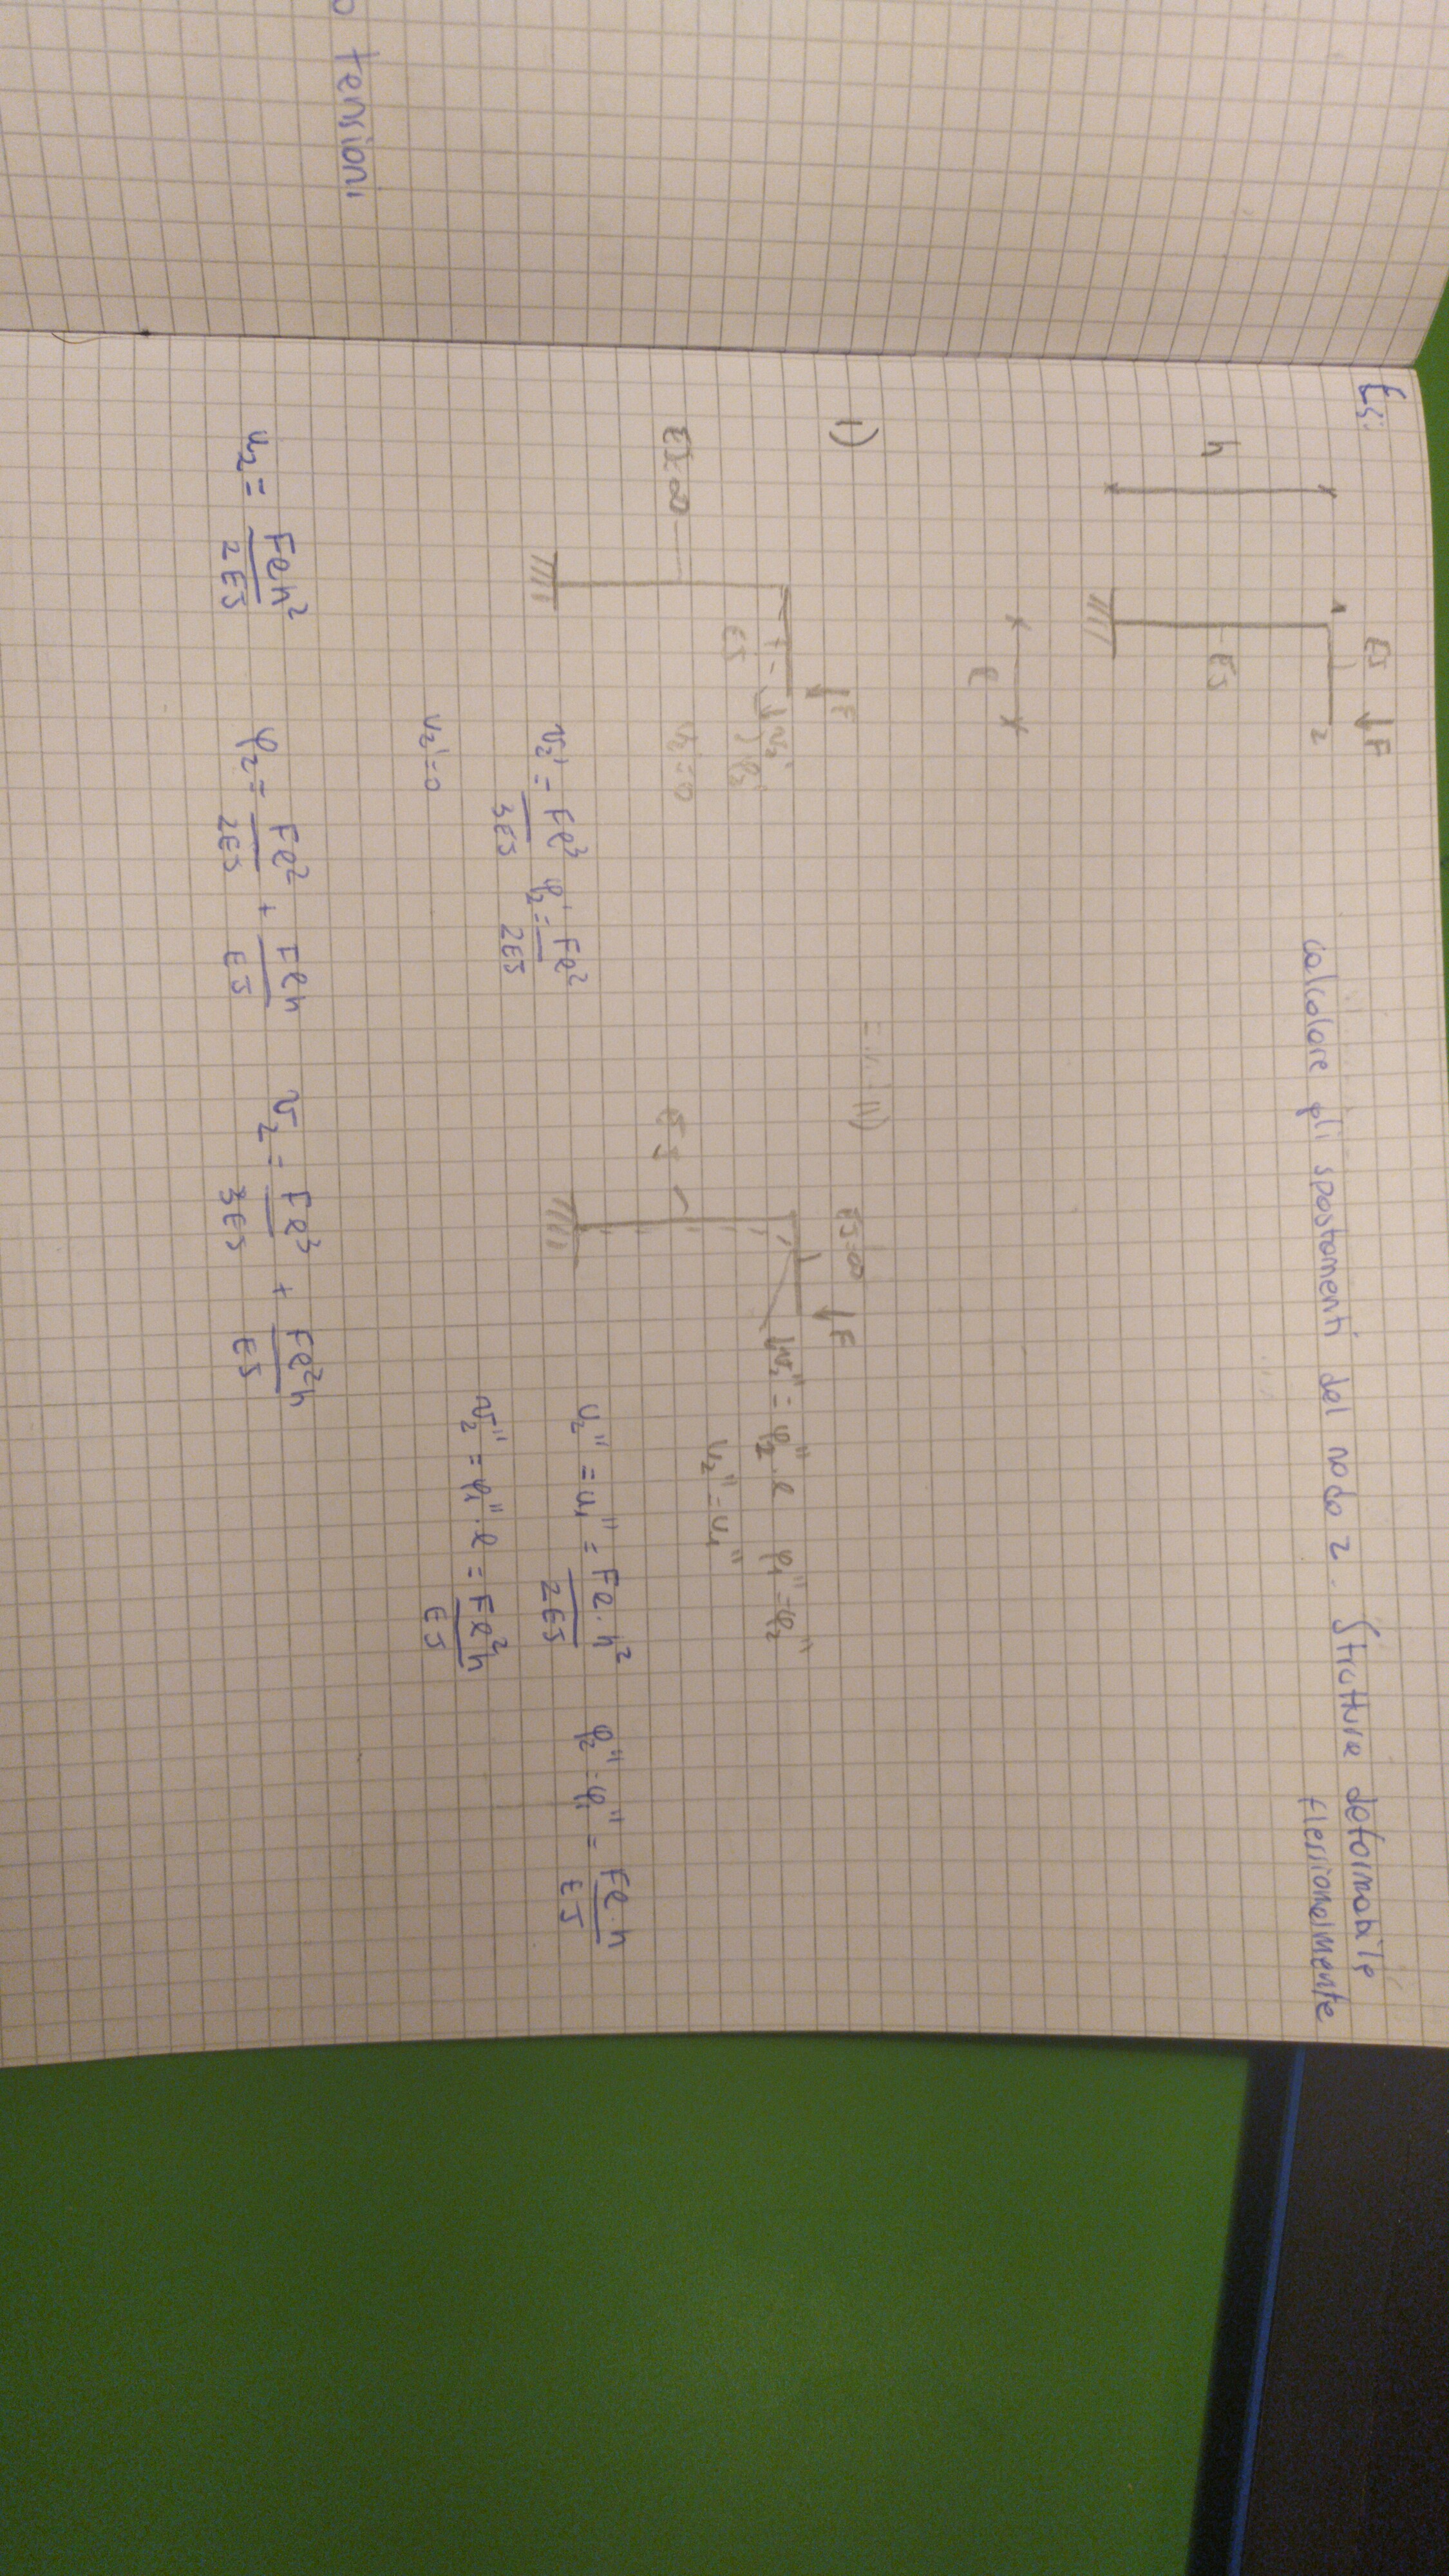 o tensioni
Es:
EJ ↓F
1 2
h
EJ
l
calcolare gli spostamenti del nodo 2. Struttura deformabile
flessionalmente
I)
↓F
EJ=∞
EJ
v₂'
φ₂'
u₂'=0
v₂' = Fl³/3EJ φ₂' = Fl²/2EJ
u₂'=0
II)
EJ=∞ ↓F
EJ
v₂'' = φ₂''·l φ₁''=φ₂''
u₂''=u₁''
u₂'' = u₁'' = Fl·h²/2EJ φ₂''=φ₁'' = Fl·h/EJ
v₂'' = φ₁''·l = Fl²h/EJ
u₂ = Flh²/2EJ φ₂ = Fl²/2EJ + Flh/EJ v₂ = Fl³/3EJ + Fl²h/EJ